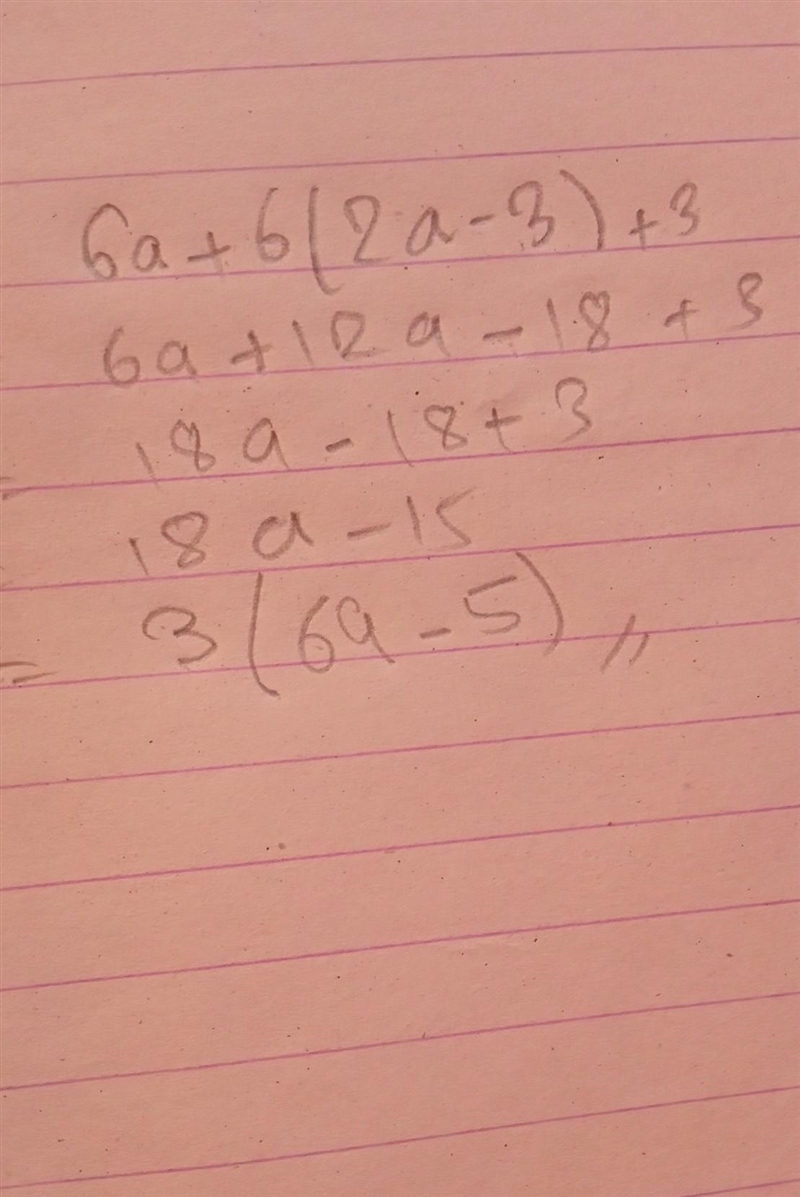 6a+6(2a-3)+3
6a+12a-18+3
= 18a-18+3
18a-15
= 3(6a-5)〃